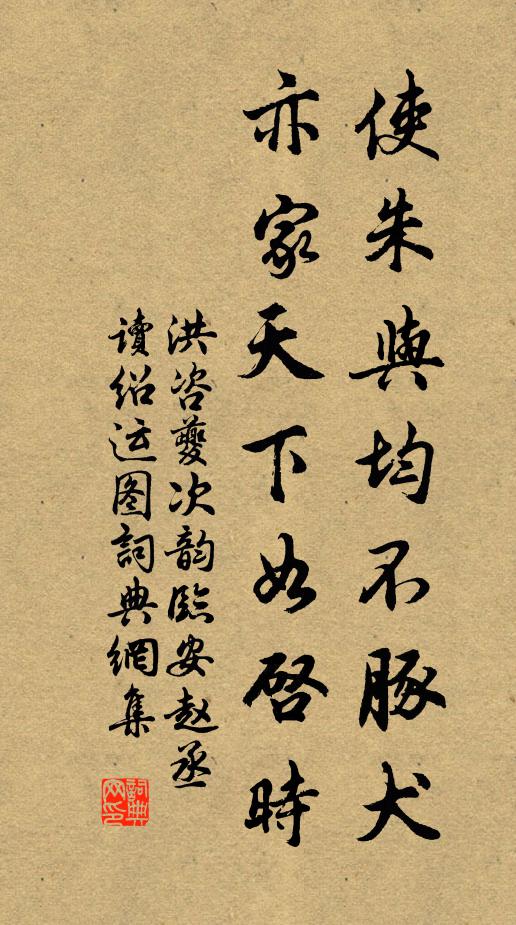 使朱與均不豚犬
亦家天下如啓時
洪咨夔次韵臨安赵丞
讀绍运图詞典網集
詞典网印